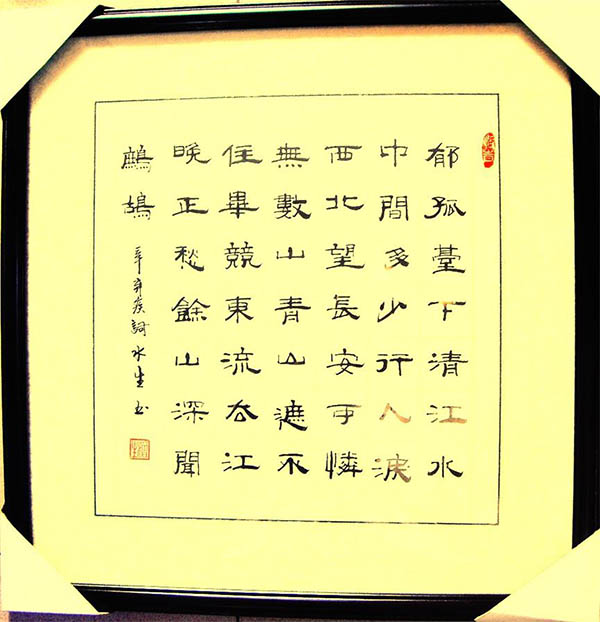 郁孤臺下清江水
中間多少行人淚
西北望長安可憐
無數山青山遮不
住畢競東流去江
晚正愁餘山深聞
鷓鴣 辛弃疾詞水生书